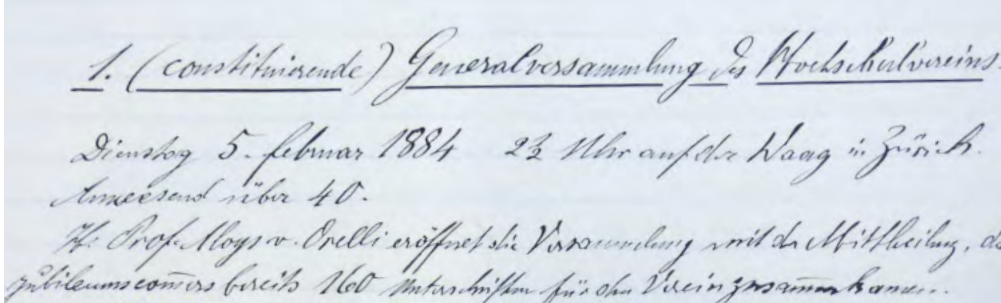 1. (constituierende) Generalversammlung des Hochschulvereins.
Dienstag 5. Februar 1884 2½ Uhr auf der Waag in Zürich.
Anwesend über 40.
H. Prof. Aloys v. Orelli eröffnet die Versammlung mit der Mittheilung, da
Jubileumscom̅ers bereits 160 Unterschriften für den Verein zusam̅enkamen.